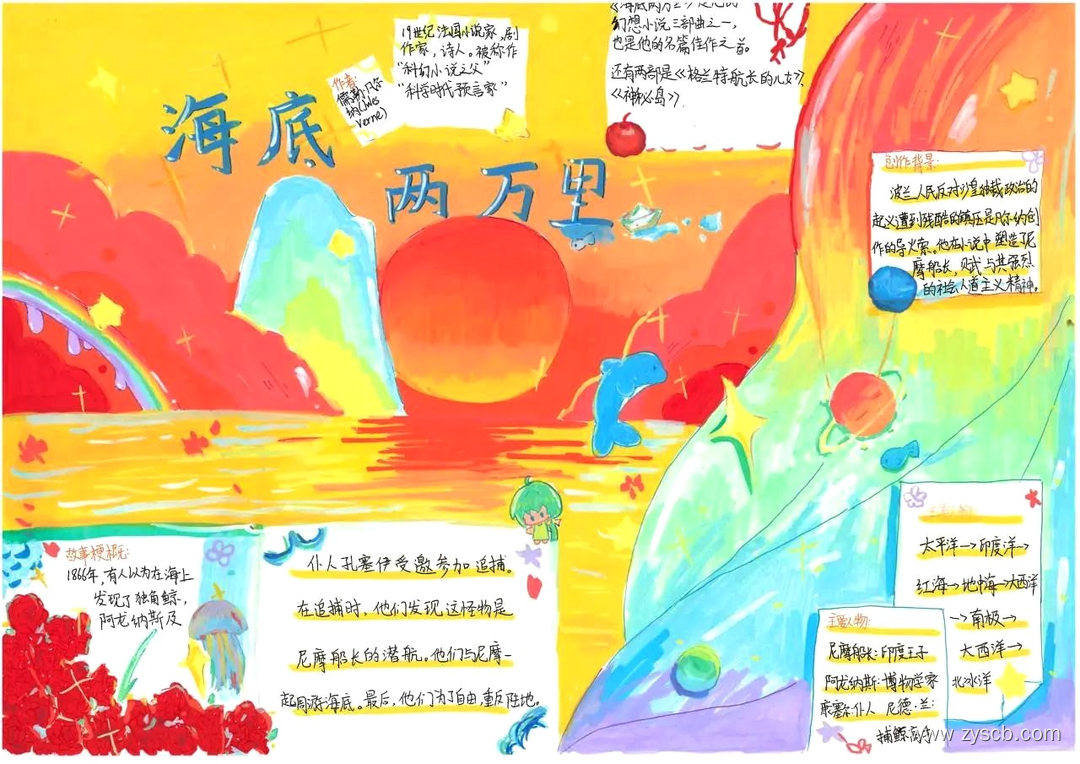 海底
两万里
作者:
儒勒·凡尔
纳(Jules
Verne)
19世纪法国小说家,剧
作家,诗人。被称作
“科幻小说之父”
“科学时代预言家”
幻想小说三部曲之一,
也是他的名篇佳作之首。
还有两部是《格兰特船长的儿女》,
《神秘岛》.
创作背景:
波兰人民反对沙皇独裁政治的
起义遭到残酷的镇压是凡尔纳创
作的导火索。他在小说中塑造了尼
摩船长,赋式与其强烈
的社会人道主义精神。
故事梗概:
1866年,有人以为在海上
发现了独角鲸,
阿龙纳斯及
仆人孔塞伊受邀参加追捕。
在追捕时,他们发现这怪物是
尼摩船长的潜航。他们与尼摩一
起周游海底。最后,他们为了自由,重反陆地。
太平洋→印度洋→
红海→地中海→大西洋
→南极→
大西洋→
北冰洋
主要人物:
尼摩船长:印度王子
阿龙纳斯:博物学家
康塞尔:仆人 尼德·兰:
捕鲸高手
www.zyscb.com